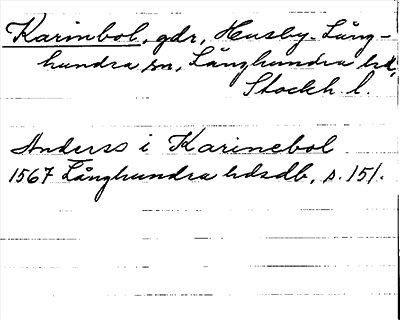 Karinbol, gdr, Husby-Lång-
hundra sn, Långhundra hd,
Stockh l.
Anders i Karinebol
1567 Långhundra hdsdb, s. 151.